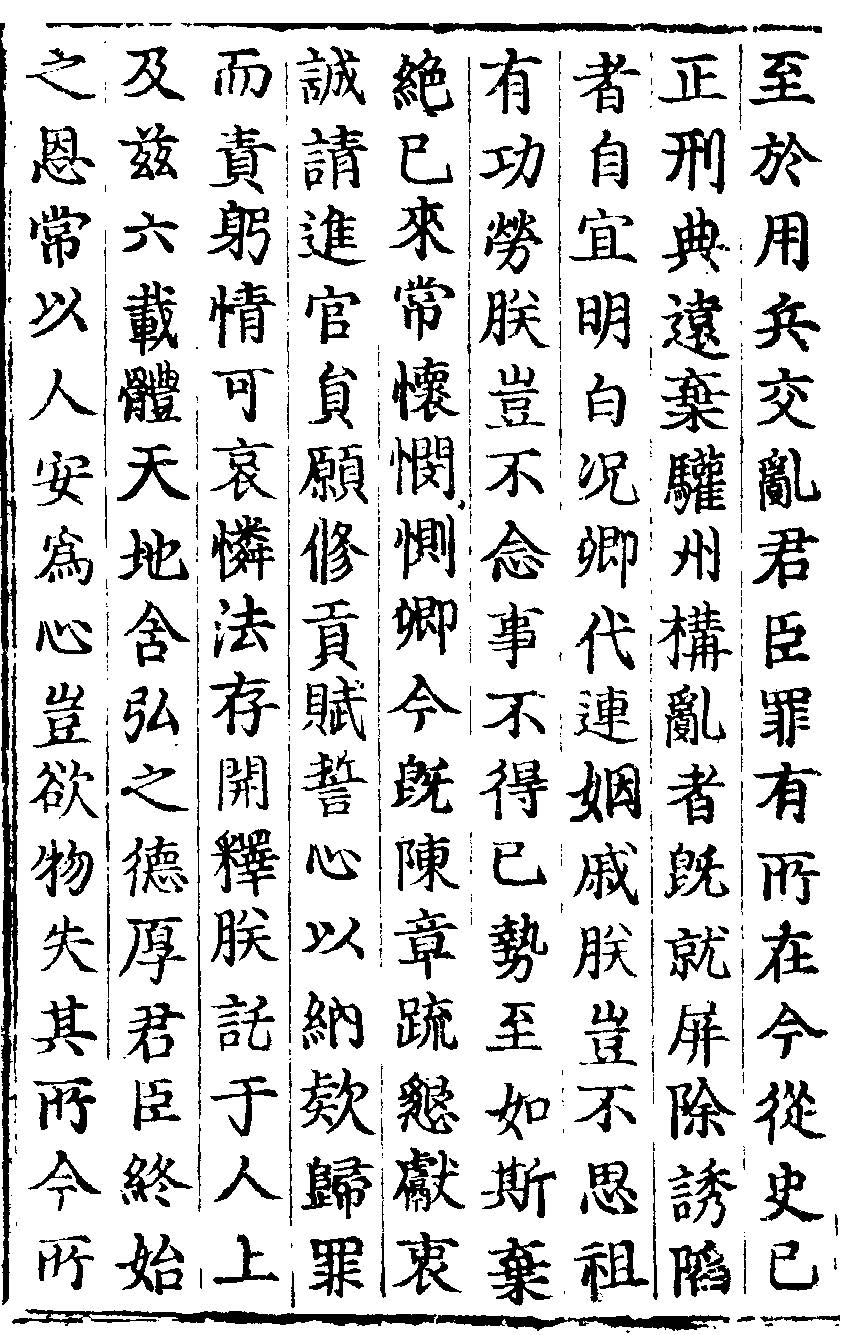 至於用兵交亂君臣罪有所在今從史已
正刑典遠棄驩州構亂者既就屏除誘陷
者自宜明白况卿代連姻戚朕豈不思祖
有功勞朕豈不念事不得已勢至如斯棄
絶已來常懷憫惻卿今既陳章疏懇獻衷
誠請進官員願修貢賦誓心以納欵歸罪
而責躬情可哀憐法存開釋朕託于人上
及兹六載體天地含弘之德厚君臣終始
之恩常以人安爲心豈欲物失其所今所